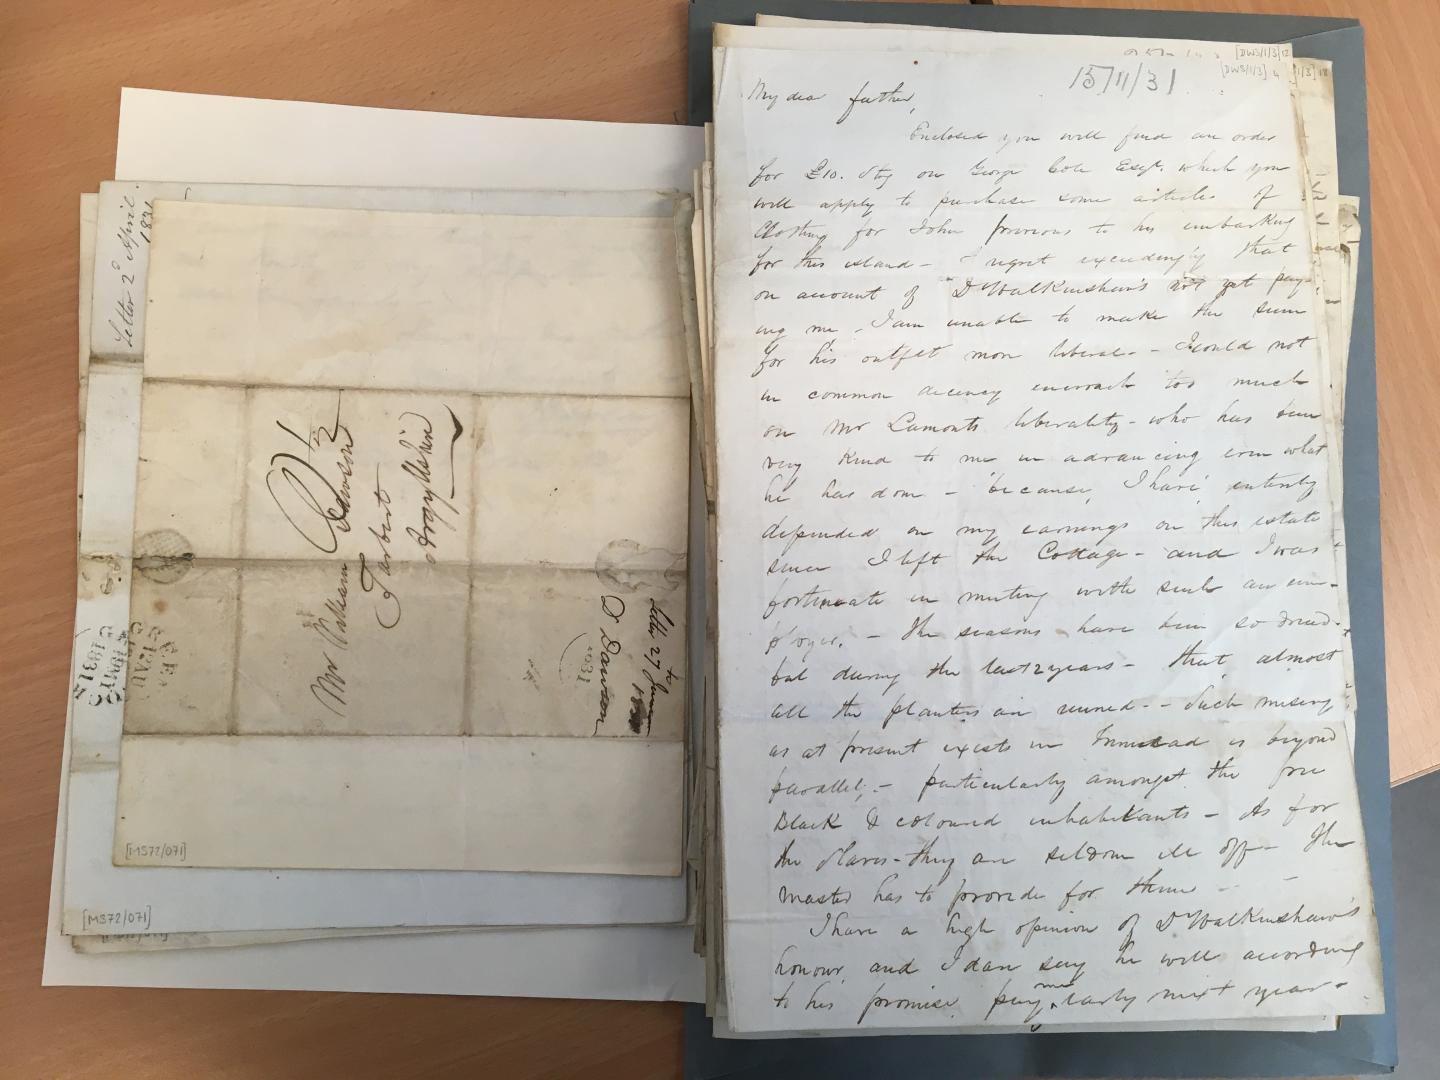 Letter 2d April.
1831
Mr William Dawson
Tarbert
Argyllshire
Letter 27
to
D Dawson
1831
[MS72/071]
[MS72/071]
[DWS/1/3] 12
[DWS/1/3] 4
15/11/31
My dear father,
Enclosed you will find an order
for £10. Stg on George Cole Esqr. which you
will apply to purchase some articles of
Clothing for John previous to his embarking
for this island – I regret exceedingly that
on account of Dr Walkinshaw's not yet pay-
ing me – I am unable to make the sum
for his outfit more liberal – I could not
in common decency encroach too much
on Mr Lamonts liberality – who has been
very kind to me in advancing even what
he has done – because, I have entirely
depended on my earnings on this estate
since I left the Cottage – and I was
fortunate in meeting with such an em-
ployer. – The seasons have been so dread-
ful during the last 2 years – that almost
all the planters are ruined – Such misery
as at present exists in Trinidad is beyond
parallel, – particularly amongst the free
Black & coloured inhabitants – As for
the slaves – they are seldom ill off – The
master has to provide for them –
I have a high opinion of Dr Walkinshaw's
honour and I dare say he will according
to his promise pay me early next year –